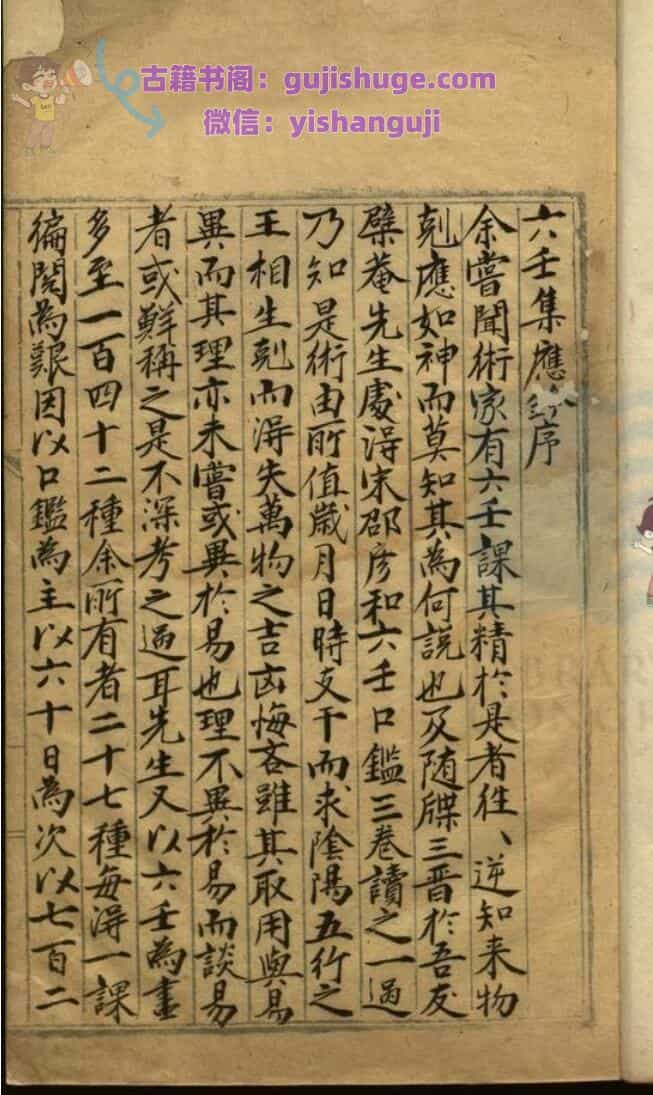 古籍书阁：gujishuge.com
微信：yishanguji
六壬集應鈐序
余嘗聞術家有六壬課其精於是者徃、逆知来物
剋應如神而莫知其為何說也及随牒三晋於吾友
檗菴先生處淂宋邵彦和六壬口鑑三卷讀之一過
乃知是術由所值歲月日時支干而求陰陽五行之
王相生剋而淂失萬物之吉凶悔吝雖其取用與易
異而其理亦未嘗或異於易也理不異於易而談易
者或鮮稱之是不深考之過耳先生又以六壬為書
多至一百四十二種余所有者二十七種每淂一課
徧閱為艱因以口鑑為主以六十日為次以七百二